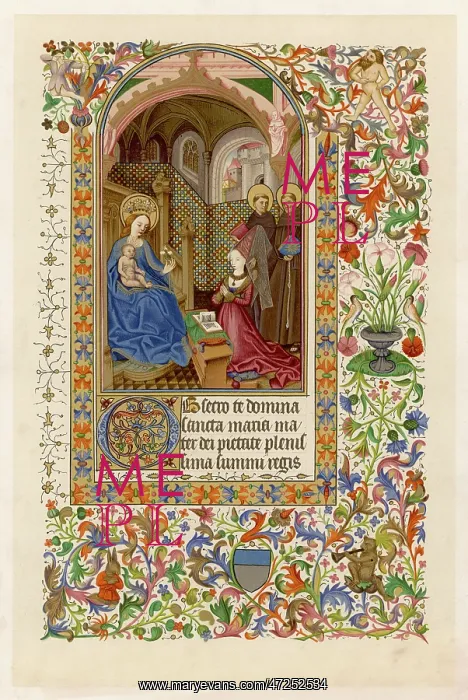 ME
PL
OBsecro te domina
sancta maria ma
ter dei pietate plenis
sima summi regis
ME
PL
www.maryevans.com/47252584